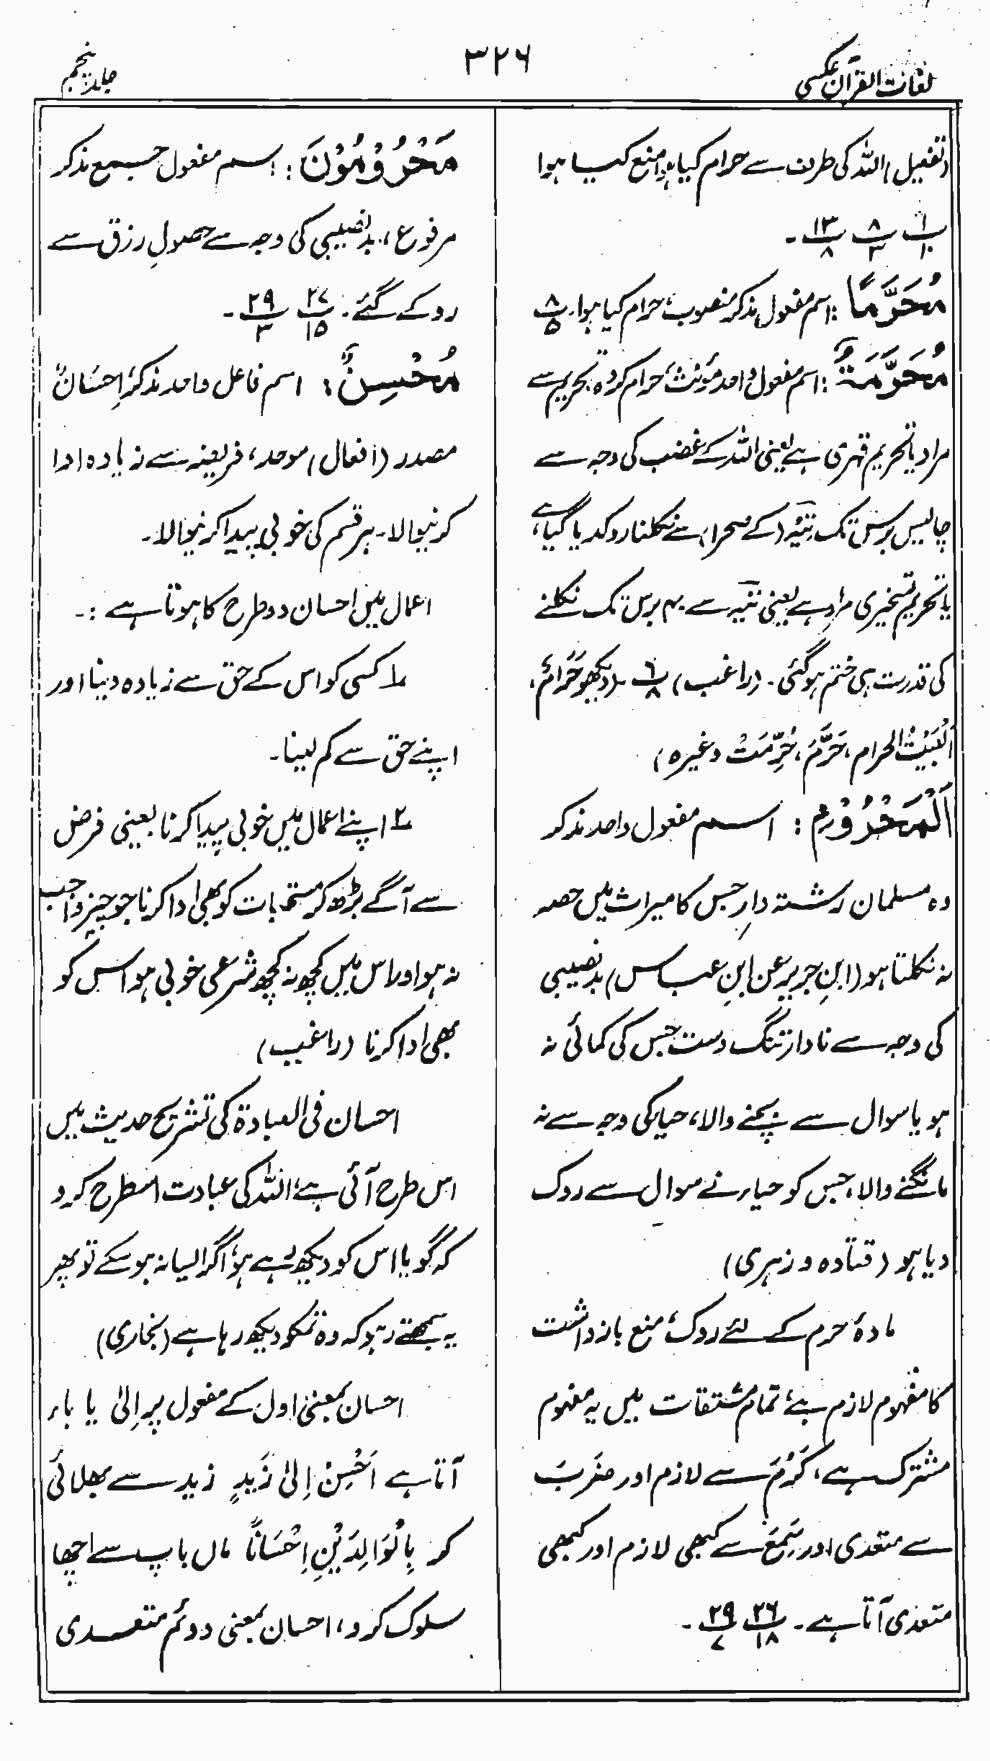 لغات القرآن عکسی
۳۲۶
جلد پنجم
(تفعیل) اللہ کی طرف سے حرام کیا ہوا، منع کیا ہوا
۱/۱۰ ۸/۳ ۱۳/۸ ۔
مُحَرَّمًا: اسم مفعول مذکر منصوب، حرام کیا ہوا۔ ۸/۵
مُحَرَّمَةٌ: اسم مفعول واحد مؤنث، حرام کردہ، تحریم سے
مراد یا تحریم قہری ہے یعنی اللہ کے غضب کی وجہ سے
چالیس برس تک تِیہ (کے صحرا) سے نکلنا روکدیا گیا ہے،
یا تحریم تسخیری مراد ہے یعنی تیہ سے ۴۰ برس تک نکلنے
کی قدرت ہی ختم ہوگئی۔ (راغب) ۶/۸ ۔ (دیکھو حَرَامٌ،
اَلْبَیْتُ الحرام، حَرَّمَ، حُرِّمَتْ وغیرہ)
اَلْمَحْرُوْمِ: اسم مفعول واحد مذکر
وہ مسلمان رشتہ دار جس کا میراث میں حصہ
نہ نکلتا ہو (ابنِ جریر عن ابنِ عباس) بدنصیبی
کی وجہ سے نادار تنگ دست جس کی کمائی نہ
ہو یا سوال سے بچنے والا، حیا کی وجہ سے نہ
مانگنے والا، جس کو حیاء نے سوال سے روک
دیا ہو (قتادہ و زہری)
مادۂ حرم کے لئے روک، منع بازداشت
کا مفہوم لازم ہے، تمام مشتقات میں یہ مفہوم
مشترک ہے، کَرُمَ سے لازم اور ضَرَبَ
سے متعدی اور سَمِعَ سے کبھی لازم اور کبھی
متعدی آتا ہے۔ ۲۶/۱۸ ۲۹/۷ ۔
مَحْرُوْمُوْنَ: اسم مفعول جمع مذکر
مرفوع، بدنصیبی کی وجہ سے حصولِ رزق سے
روکے گئے۔ ۲۷/۱۵ ۲۹/۳ ۔
مُحْسِنٌ: اسم فاعل واحد مذکر، اِحْسَانٌ
مصدر (افعال) موحد، فریضہ سے زیادہ ادا
کرنیوالا۔ ہر قسم کی خوبی پیدا کرنیوالا۔
اعمال میں احسان دو طرح کا ہوتا ہے :۔
۱؎ کسی کو اس کے حق سے زیادہ دینا اور
اپنے حق سے کم لینا۔
۲؎ اپنے اعمال میں خوبی پیدا کرنا یعنی فرض
سے آگے بڑھ کر مستحبات کو بھی ادا کرنا جو چیز واجب
نہ ہو اور اس میں کچھ نہ کچھ شرعی خوبی ہو اس کو
بھی ادا کرنا (راغب)
احسان فی العبادۃ کی تشریح حدیث میں
اس طرح آئی ہے، اللہ کی عبادت اسطرح کرو
کہ گویا اس کو دیکھ رہے ہو، اگر ایسا نہ ہو سکے تو پھر
یہ سمجھتے رہو کہ وہ تمکو دیکھ رہا ہے (بخاری)
احسان بمعنیٔ اول کے مفعول پر اِلیٰ یا باء
آتا ہے اَحْسِنْ اِلیٰ زَیدٍ زید سے بھلائی
کر بِالْوَالِدَیْنِ اِحْسَانًا ماں باپ سے اچھا
سلوک کرو، احسان بمعنی دوئم متعدی